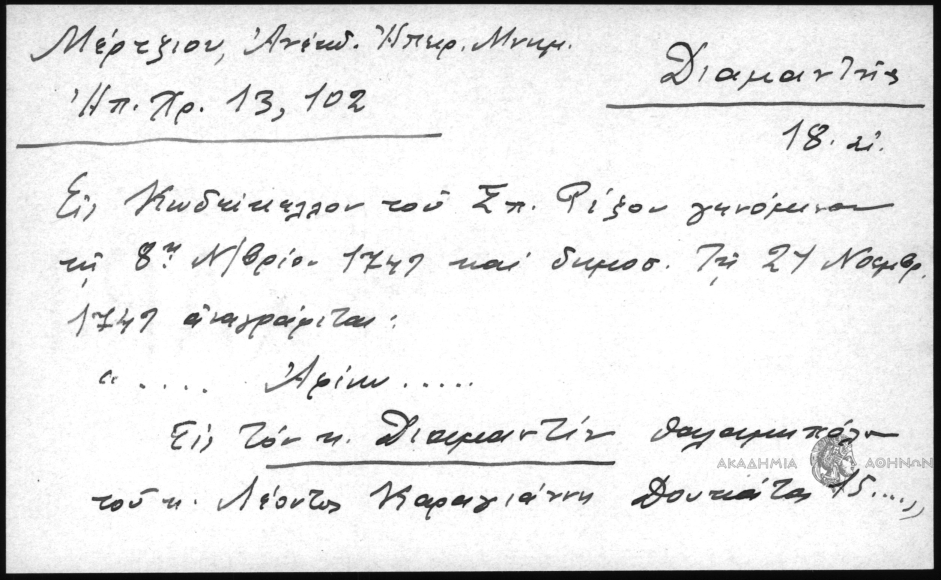 Μέρτζιου, Ἀνέκδ. Ἠπειρ. Μνημ.
Διαμαντῆς
Ἠπ. Χρ. 13, 102
18. αἰ.
Εἰς Κωδίκελλον τοῦ Σπ. Ρίζου γενόμενον
τῇ 8ῃ Ν/βρίου 1747 καὶ δημοσ. Τῇ 21 Νοεμβρ.
1747 ἀναγράφεται:
« ..... Ἀφίνω .....
Εἰς τόν κ. Διαμαντῆν θαλαμηπόλον
τοῦ κ. Λέοντος Καραγιάννη Δουκάτα 15....»
ΑΚΑΔΗΜΙΑ ΑΘΗΝΩΝ